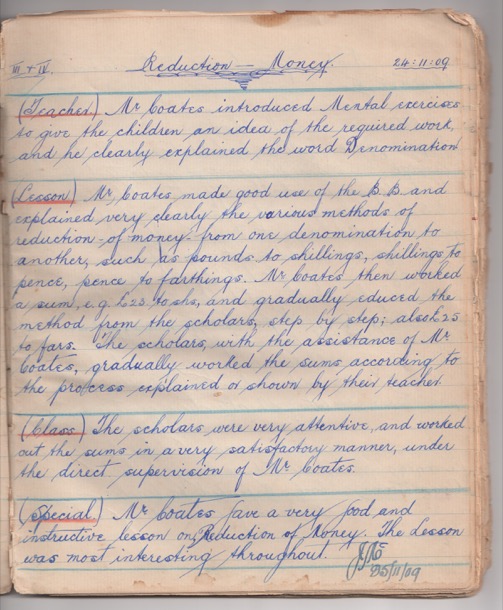 III & IV. Reduction — Money. 24:11:09
(Teacher.) Mr Coates introduced Mental exercises
to give the children an idea of the required work,
and he clearly explained the word Denomination
(Lesson) Mr Coates, made good use of the B.B. and
explained very clearly the various methods of
reduction of money from one denomination to
another, such as pounds to shillings, shillings to
pence, pence to farthings. Mr Coates then worked
a sum, e.g. £25 to shs, and gradually educed the
method from the scholars, step by step; also £25
to fars. The scholars, with the assistance of Mr
Coates, gradually worked the sums according to
the process explained or shown by their teacher
(Class) The scholars were very attentive, and worked
out the sums in a very satisfactory manner, under
the direct supervision of Mr Coates.
(Special.) Mr Coates gave a very good and
instructive lesson on Reduction of Money. The Lesson
was most interesting throughout.
25/11/09